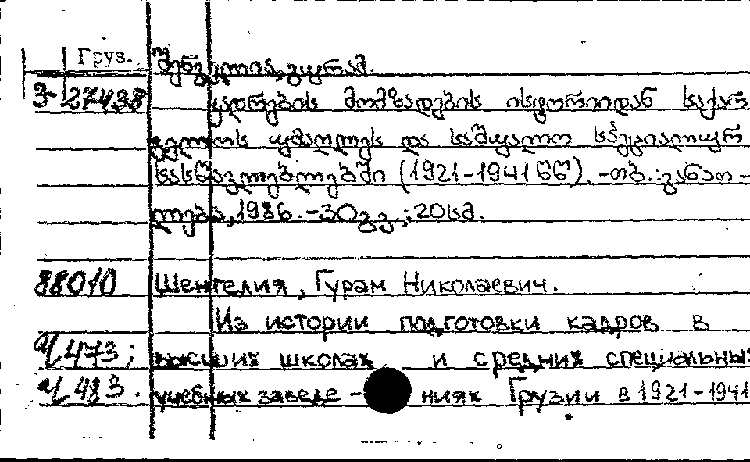 Груз.
შენგელია, გურამ.
3-27438
კადრების მომზადების ისტორიიდან საქარ
თველოს უმაღლეს და საშუალო სპეციალურ
სასწავლებლებში (1921-1941 წწ). -თბ.: განათ-
ლება, 1986. -30 გვ.; 20 სმ.
88010 Шенгелия, Гурам Николаевич.
Из истории подготовки кадров в
Ч 473; высших школах и средних специальных
Ч 483. учебных заведе- ниях Грузии в 1921-1941